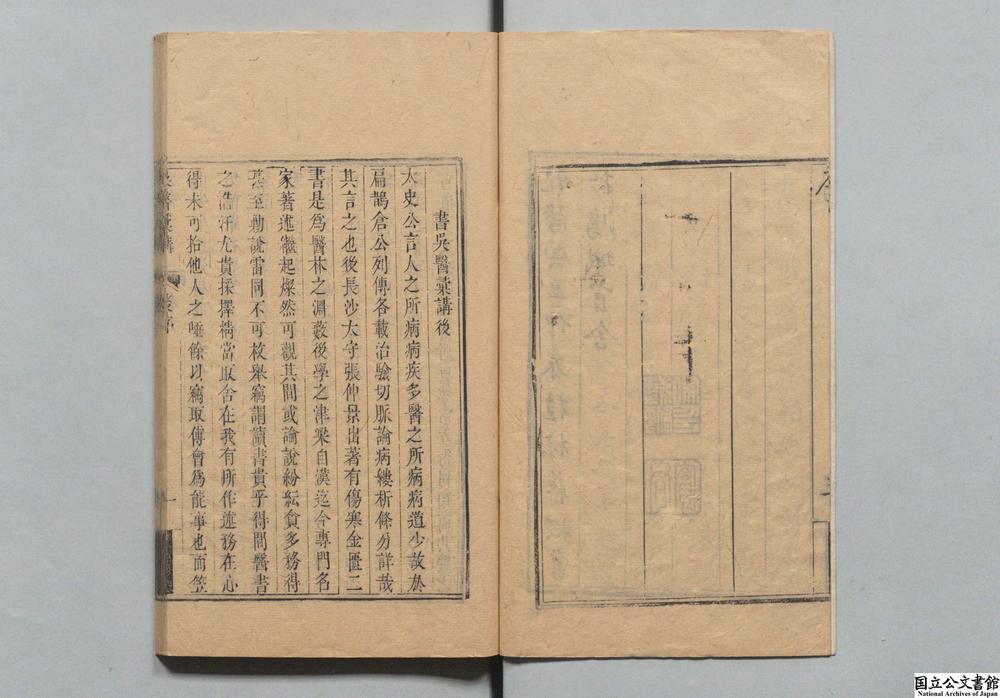 書吳醫彙講後
太史公言人之所病病疾多醫之所病病道少故於
扁鵲倉公列傳各載治驗切脈論病縷析條分詳哉
其言之也後長沙太守張仲景出著有傷寒金匱二
書是爲醫林之淵藪後學之津梁自漢迄今專門名
家著述繼起燦然可觀其間或論說紛紜貪多務得
甚至勦說雷同不可枚舉竊謂讀書貴乎得間醫書
之浩汗尤貴採擇精當取舍在我有所作述務在心
得未可拾他人之唾餘以竊取傅會爲能事也而笠
吳醫彙講
一
国立公文書館
National Archives of Japan